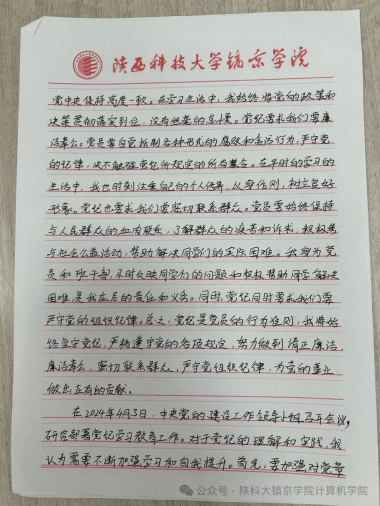 陕西科技大学镐京学院
党中央保持高度一致。在学习生活中,我始终将党的政策和
决策贯彻落实到位,没有丝毫的怠慢。党纪要求我们要廉
洁奉公。党员要自觉抵制各种形式的腐败和贪污行为,严守党
的纪律,决不触碰党纪所规定的所有禁令。在平时的学习和
生活中,我也时刻注重自己的个人修养,从身作则,树立良好
形象。党纪也要求我们要密切联系群众。党员要始终保持
与人民群众的血肉联系,了解群众的疾苦和诉求,积极参
与社会公益活动,帮助解决同学们的实际困难。我身为党
员和班干部,及时反映同学们的问题和积极帮助同学解决
困难,是我应尽的责任和义务。同时,党纪同时要求我们要
严守党的组织纪律。总之,党纪是党员的行为准则,我将始
终坚守党纪,严格遵守党的各项规定,努力做到清正廉洁,
廉洁奉公,密切联系群众,严守党组织纪律,为党的事业
做出应有的贡献。
在2024年4月3日,中央党的建设工作领导小组召开会议,
研究部署党纪学习教育工作。对于党纪的理解和实践,我
认为需要不断加强学习和自我提升。首先,要加强对党章
公众号·陕科大镐京学院计算机学院